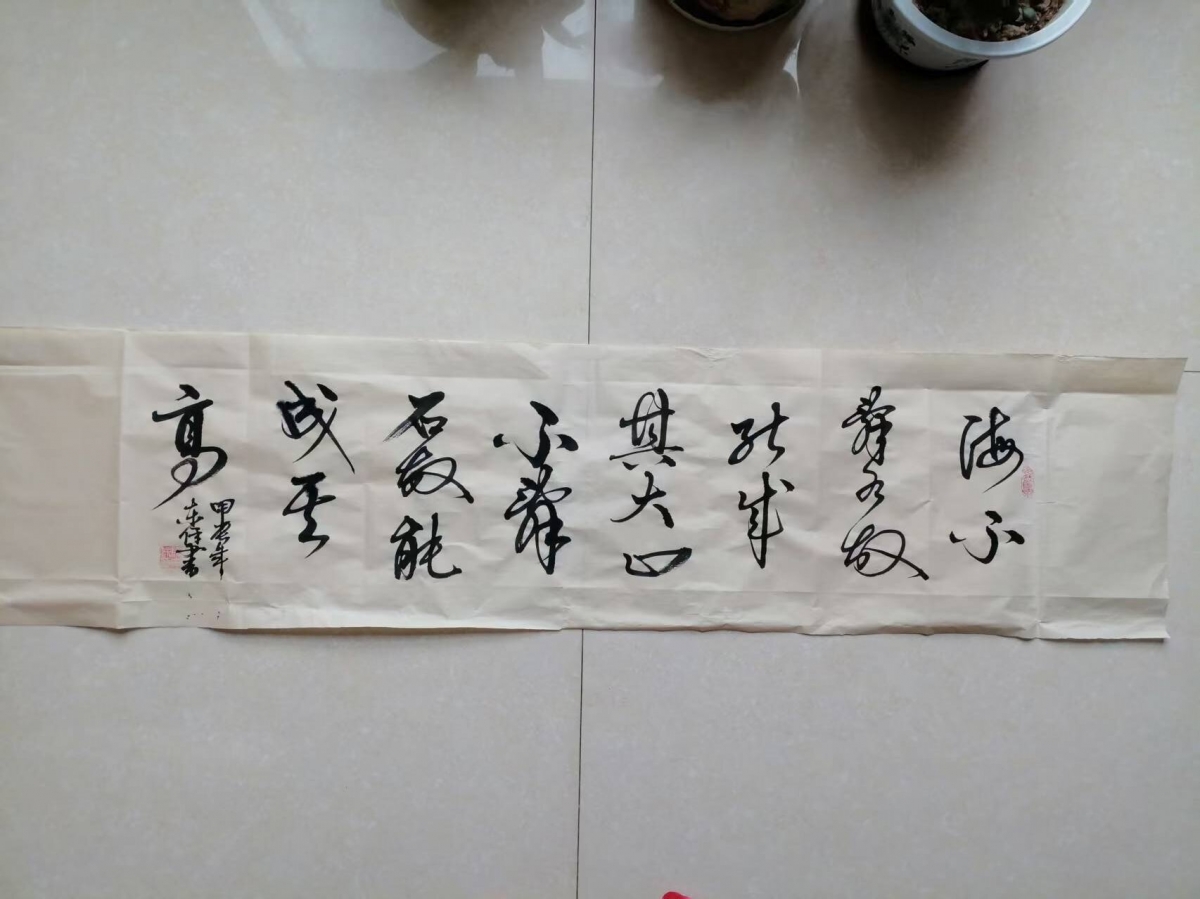 海不
辭水故
能成
其大山
不辭
石故能
成其
高
甲辰年
書